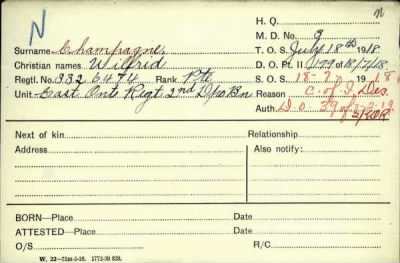 N
n
H. Q.
M. D. No. 3
Surname Champagne T. O. S. July 18th 1918.
Christian names Wilfrid D. O. Pt. II 179 of 18/7/18
Regtl. No. 3326474 Rank Pte S. O. S. 18-7- 1918.
Unit East. Ont. Regt 2nd Depo Bn Reason C. of I. Des.
Auth. D.O. 39 of
Next of kin Relationship
Address Also notify:
BORN—Place Date
ATTESTED—Place Date
O/S R/C
W. 22—75M-5-18. 1772-39 839.